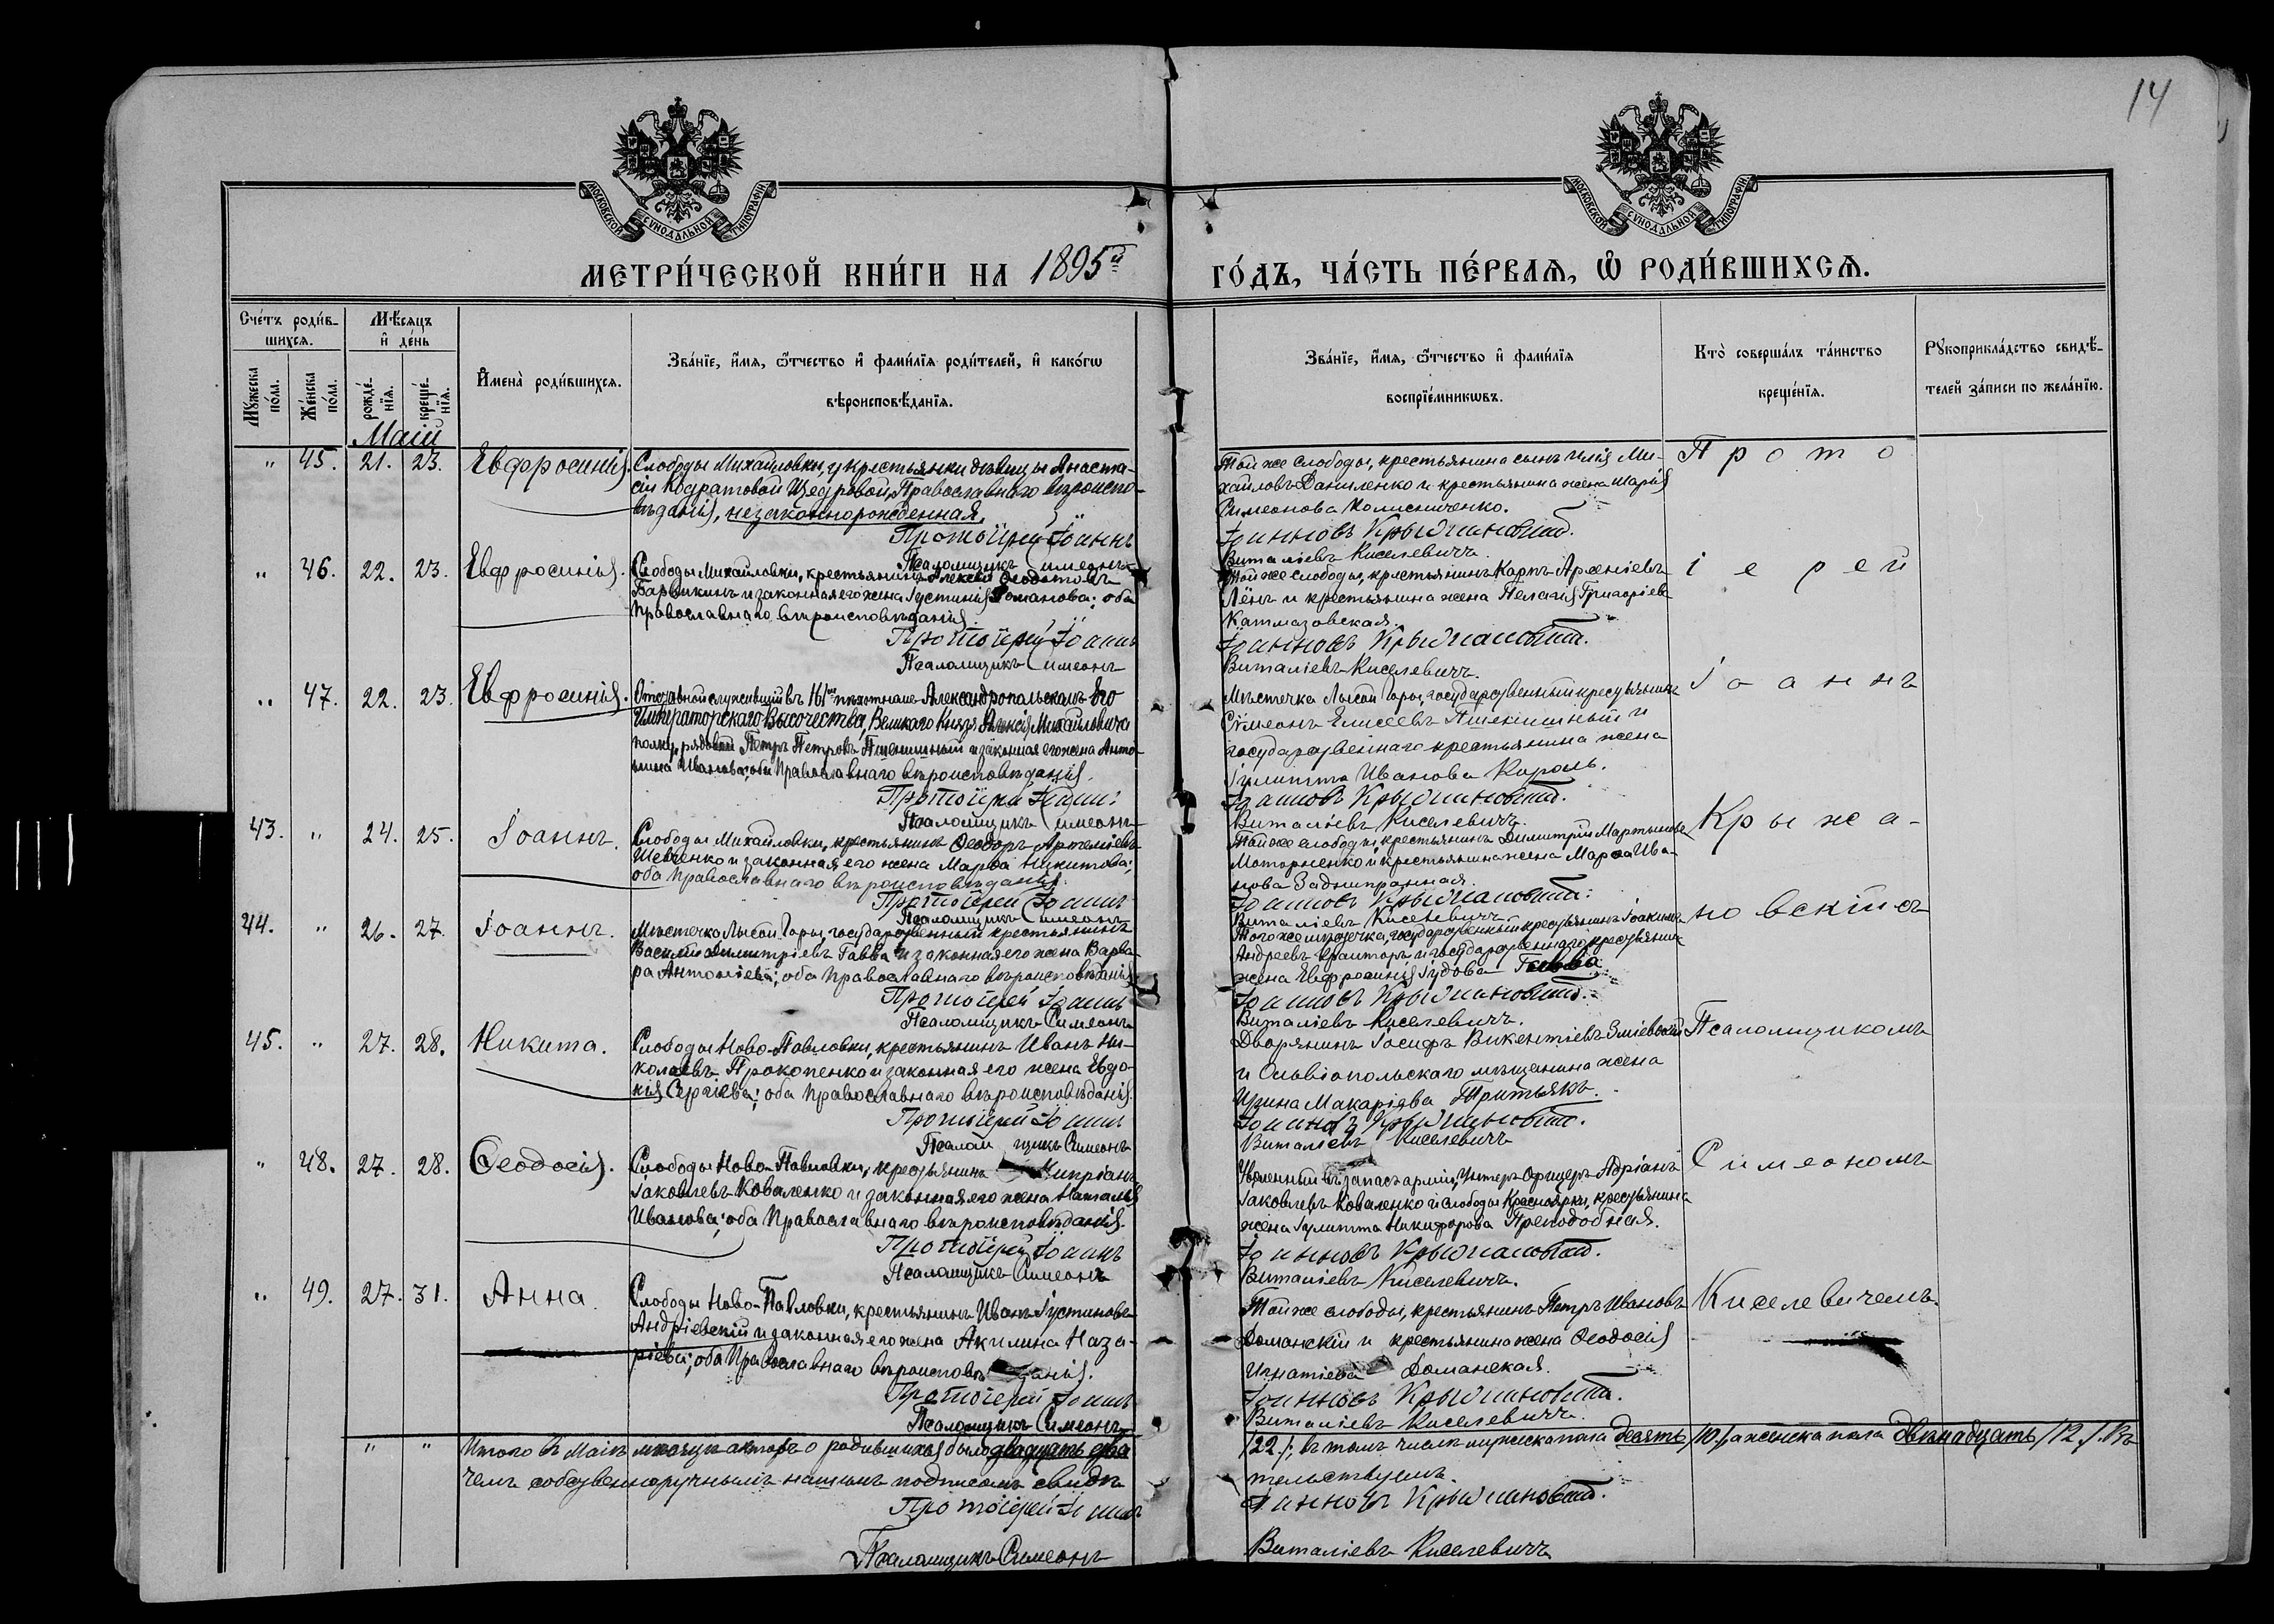 14
МОСКОВСКОЙ СѴНОДАЛЬНОЙ ТИПОГРАФІИ.
МОСКОВСКОЙ СѴНОДАЛЬНОЙ ТИПОГРАФІИ.
МЕТРИ́ЧЕСКОЙ КНИ́ГИ НА 1895й ГО́ДЪ, ЧА́СТЬ ПЕ́РВАѦ, Ѽ РОДИ́ВШИХСѦ.
Сче́тъ роди́в-
шихсѧ.
Мꙋжеска по́ла.
Же́нска по́ла.
Мѣ́сѧцъ и҆ де́нь
рожде́-нїѧ.
креще́-нїѧ.
И҆мена̀ роди́вшихсѧ.
Зва́нїе, и҆́мѧ, ѻ҆́тчество и҆ фами́лїѧ роди́телей, и҆ како́гѡ
вѣроисповѣ́данїѧ.
Зва́нїе, и҆́мѧ, ѻ҆́тчество и҆ фами́лїѧ
воспрїе́мникѡвъ.
Кто̀ соверша́лъ та́инство
креще́нїѧ.
Рꙋкоприкла́дство свидѣ́-
телей за́писи по жела́нїю.
Маій
" 45. 21. 23. Евфросинія.
Слободы Михайловки, у крестьянки дѣвицы Анаста-
сіи Кодратовой Щедровой, Православнаго вѣроиспо-
вѣданія, незаконнорожденная.
Протоіерей Іоаннъ
Псаломщикъ Симеонъ
Той же слободы, крестьянина сынъ Илія Ми-
хайловъ Даниленко и крестьянина жена Марія
Симеонова Колисниченко.
Іоанновъ Крыжановскій.
Виталіевъ Киселевичъ.
Прото
" 46. 22. 23. Евфросинія.
Слободы Михайловки, крестьянинъ Алексій Ѳеодотовъ
и законная его жена Іустинія Романова; оба
Православнаго вѣроисповѣданія.
Протоіерей Іоаннъ
Псаломщикъ Симеонъ
Той же слободы, крестьянинъ Карпъ Арсеніевъ
Лёнъ и крестьянина жена Пелагія Григоріева
Катмазовская.
Іоанновъ Крыжановскій.
Виталіевъ Киселевичъ.
іерей
" 47. 22. 23. Евфросинія.
Отставной служившій въ 161мъ пѣхотномъ Александропольскомъ Его
Императорскаго Высочества, Великаго Князя Алексія Михайловича
полку, рядовой Петръ Петровъ Пшеничный и законная его жена Анто-
нина Иванова; оба Православнаго вѣроисповѣданія.
Протоіерей Іоаннъ
Псаломщикъ Симеонъ
Мѣстечка Лысой Горы, государственный крестьянинъ
Симеонъ Елисеевъ Пшеничный и
государственнаго крестьянина жена
Іулитта Иванова Король.
Іоанновъ Крыжановскій.
Виталіевъ Киселевичъ.
Іоаннъ
43. " 24. 25. Іоаннъ.
Слободы Михайловки, крестьянинъ Ѳеодоръ Артеміевъ
Шевченко и законная его жена Марѳа Никитова;
оба Православнаго вѣроисповѣданія.
Протоіерей Іоаннъ
Псаломщикъ Симеонъ
Той же слободы, крестьянинъ Димитрій Мартыновъ
Моторненко и крестьянина жена Марѳа Ива-
нова Заднипрянная.
Іоанновъ Крыжановскій.
Виталіевъ Киселевичъ.
Крыжа-
44. " 26. 27. Іоаннъ.
Мѣстечка Лысой Горы, государственный крестьянинъ
Василій Димитріевъ Гавва и законная его жена Варва-
ра Антоніева; оба Православнаго вѣроисповѣданія.
Протоіерей Іоаннъ
Псаломщикъ Симеонъ
Того же мѣстечка, государственный крестьянинъ Іоакимъ
Андреевъ и государственнаго крестьянина
жена Евфросинія Іудова Гавва.
Іоанновъ Крыжановскій.
Виталіевъ Киселевичъ.
новскій съ
45. " 27. 28. Никита.
Слободы Ново-Павловки, крестьянинъ Иванъ Ни-
колаевъ Прокопенко и законная его жена Евдо-
кія Сергіева; оба Православнаго вѣроисповѣданія.
Протоіерей Іоаннъ
Псаломщикъ Симеонъ
Дворянинъ Іосифъ Викентіевъ Зміевскій
и Ольвіопольскаго мѣщанина жена
Ирина Макаріева Притьякъ.
Іоанновъ Крыжановскій.
Виталіевъ Киселевичъ
Псаломщикомъ
" 48. 27. 28. Ѳеодосія.
Слободы Ново-Павловки, крестьянинъ Кипріанъ
Іаковлевъ Коваленко и законная его жена Наталія
Иванова; оба Православнаго вѣроисповѣданія.
Протоіерей Іоаннъ
Псаломщикъ Симеонъ
Уволенный въ запасъ арміи, Унтеръ Офицеръ Адріанъ
Іаковлевъ Коваленко и слободы Красноярки, крестьянина
жена Іулитта Никифорова Преподобная.
Іоанновъ Крыжановскій.
Виталіевъ Киселевичъ.
Симеономъ
" 49. 27. 31. Анна.
Слободы Ново-Павловки, крестьянинъ Иванъ Іустиновъ
Андріевскій и законная его жена Акилина Наза-
ріева; оба Православнаго вѣроисповѣданія.
Протоіерей Іоаннъ
Псаломщикъ Симеонъ
Той же слободы, крестьянинъ Петръ Ивановъ
Доманскій и крестьянина жена Ѳеодосія
Игнатіева Доманская.
Іоанновъ Крыжановскій.
Виталіевъ Киселевичъ.
Киселевичемъ.
" " Итого въ Маіѣ мѣсяцѣ актовъ о родившихся было двадцать два /22/; въ томъ числѣ мужеска пола десять /10/, а женска пола двѣнадцать /12/. Въ
чемъ собственноручнымъ нашимъ подписомъ свидѣтельствуемъ.
Протоіерей Іоаннъ Іоанновъ Крыжановскій.
Псаломщикъ Симеонъ Виталіевъ Киселевичъ